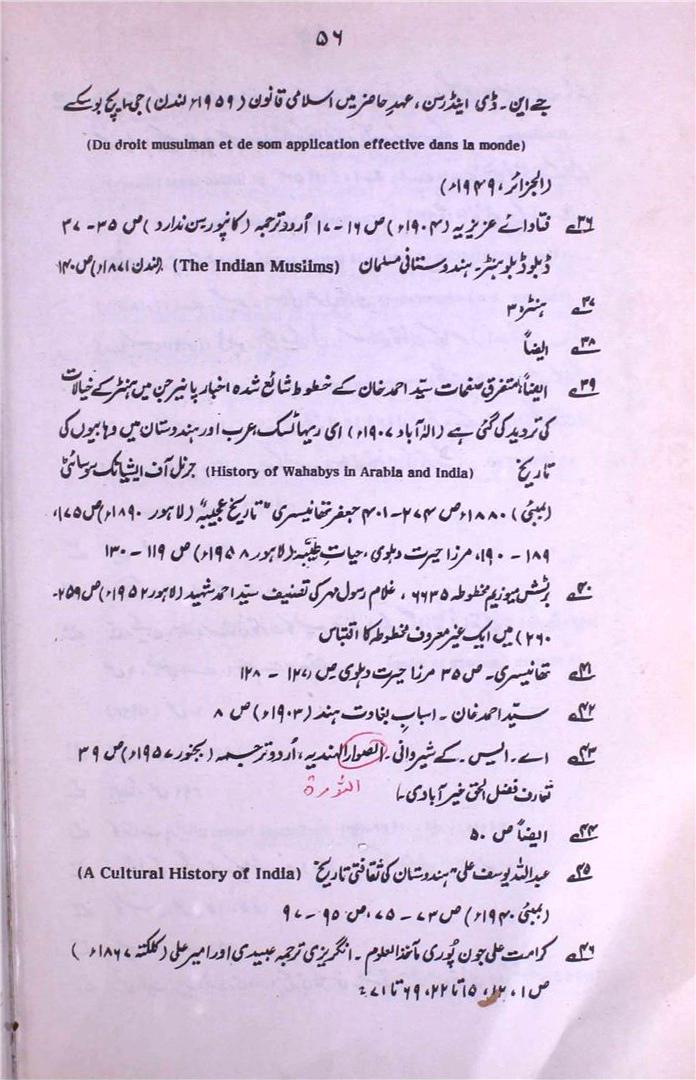 ۵۶
جے این۔ ڈی اینڈرسن، عہدِ حاضر میں اسلامی قانون (۱۹۵۹ء لندن) جی ایچ بوسکے
(Du droit musulman et de som application effective dans la monde)
(الجزائر، ۱۹۴۹ء)
۳۶ فتاوائے عزیزیہ (۱۹۰۴ء) ص ۱۶ - ۱۷ اُردو ترجمہ (کانپور سن ندارد) ص ۳۵ - ۳۷
ڈبلو ڈبلو ہنٹر۔ ہندوستانی مسلمان (The Indian Muslims) (لندن ۱۸۷۱ء) ص ۱۴۰
۳۷ ہنٹر: ۳
۳۸ ایضاً
۳۹ ایضاً، متفرق صفحات سیّد احمد خان کے خطوط شائع شدہ اخبار پانیر جن میں ہنٹر کے خیالات
کی تردید کی گئی ہے (الہٰ آباد ۱۹۰۷ء) ای ریہاٹسک عرب اور ہندوستان میں وہابیوں کی
تاریخ (History of Wahabys in Arabia and India) جرنل آف ایشیاٹک سوسائٹی
(بمبئی) ۱۸۸۰ء ص ۲۷۴ - ۴۰۱ جعفر تھانیسری "تاریخ عجیبہ" (لاہور ۱۸۹۰ء) ص ۱۷۵،
۱۸۹ - ۱۹۰، مرزا حیرت دہلوی، حیاتِ طیّبہ (لاہور ۱۹۵۸ء) ص ۱۱۹ - ۱۳۰
۴۰ برٹش میوزیم مخطوطہ ۶۶۳۵، غلام رسول مہر کی تصنیف سیّد احمد شہید (لاہور ۱۹۵۲ء) ص ۲۵۹ -
۲۶۰) میں ایک غیر معروف مخطوطہ کا اقتباس
۴۱ تھانیسری۔ ص ۳۵ مرزا حیرت دہلوی ص (۱۲۷ - ۱۲۸
۴۲ سیّد احمد خان۔ اسبابِ بغاوت ہند (۱۹۰۳ء) ص ۸
۴۳ اے۔ ایس۔ کے شیروانی۔ الصوار الہندیہ، اُردو ترجمہ (بجنور ۱۹۵۷ء) ص ۳۹
تعارف فضل الحق خیر آبادی۔
الثورة
۴۴ ایضاً ص ۵۰
۴۵ عبداللہ یوسف علی، ہندوستان کی ثقافتی تاریخ (A Cultural History of India)
(بمبئی ۱۹۴۰ء) ص ۷۳ - ۷۵، ص ۹۵ - ۹۷
۴۶ کرامت علی جون پُوری مآخذ العلوم۔ انگریزی ترجمہ عبیدی اور امیر علی (کلکتہ ۱۸۶۷ء)
ص ۱، ۱۲، ۱۵ تا ۲۲، ۶۹ تا ۷۱